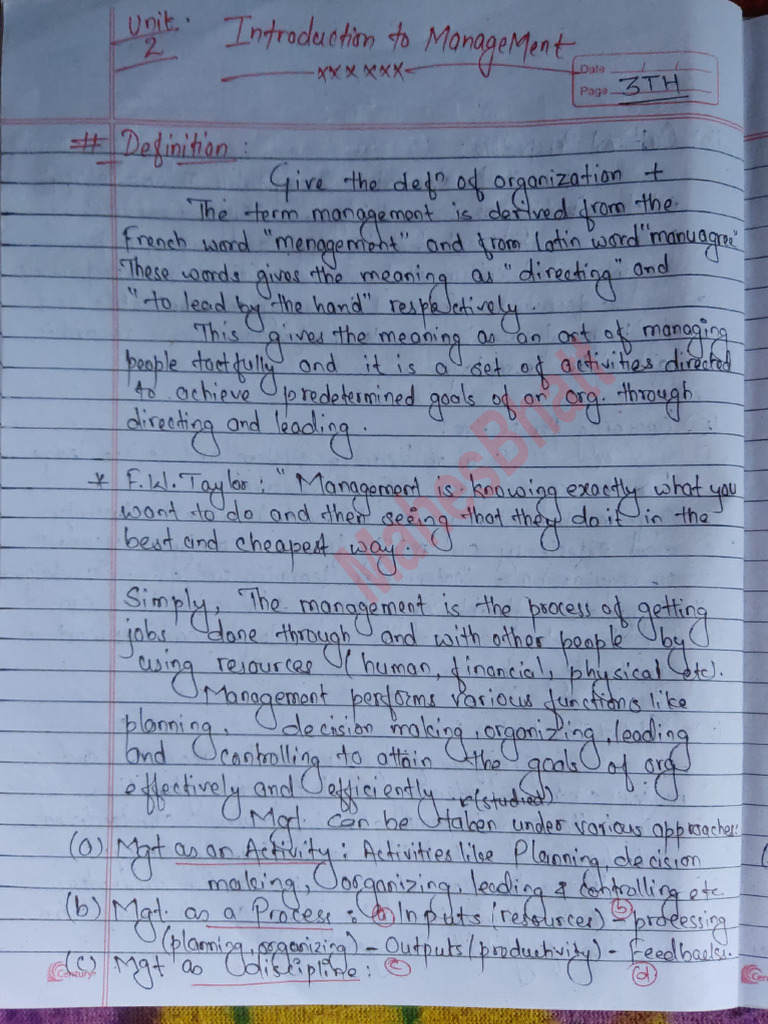 Unit. 2
Introduction to Management
xx x x x x
Date / /
Page 3TH
# Definition :
Give the defn of organization +
The term management is derived from the
French word "menagement" and from latin word "manuagree"
These words gives the meaning as "directing" and
"to lead by the hand" respectively.
This gives the meaning as an art of managing
people tactfully and it is a set of activities directed
to achieve predetermined goals of an org. through
directing and leading.
* F.W. Taylor : "Management is knowing exactly what you
want to do and then seeing that they do it in the
best and cheapest way.
Simply, The management is the process of getting
jobs done through and with other people by
using resources (human, financial, physical etc).
Management performs various functions like
planning, decision making, organizing, leading
and controlling to attain the goals of org
effectively and efficiently
r(studied)
Mgt. can be taken under various approaches:
(a) Mgt as an Activity : Activities like Planning, decision
making, organizing, leading & controlling etc.
(b) Mgt. as a Process : (a) Inputs (resources) - (b) processing
(planning, organizing) - Outputs (productivity) - Feedbacks.
(c) Mgt as discipline : (c) (d)
Century
MahesBhatt